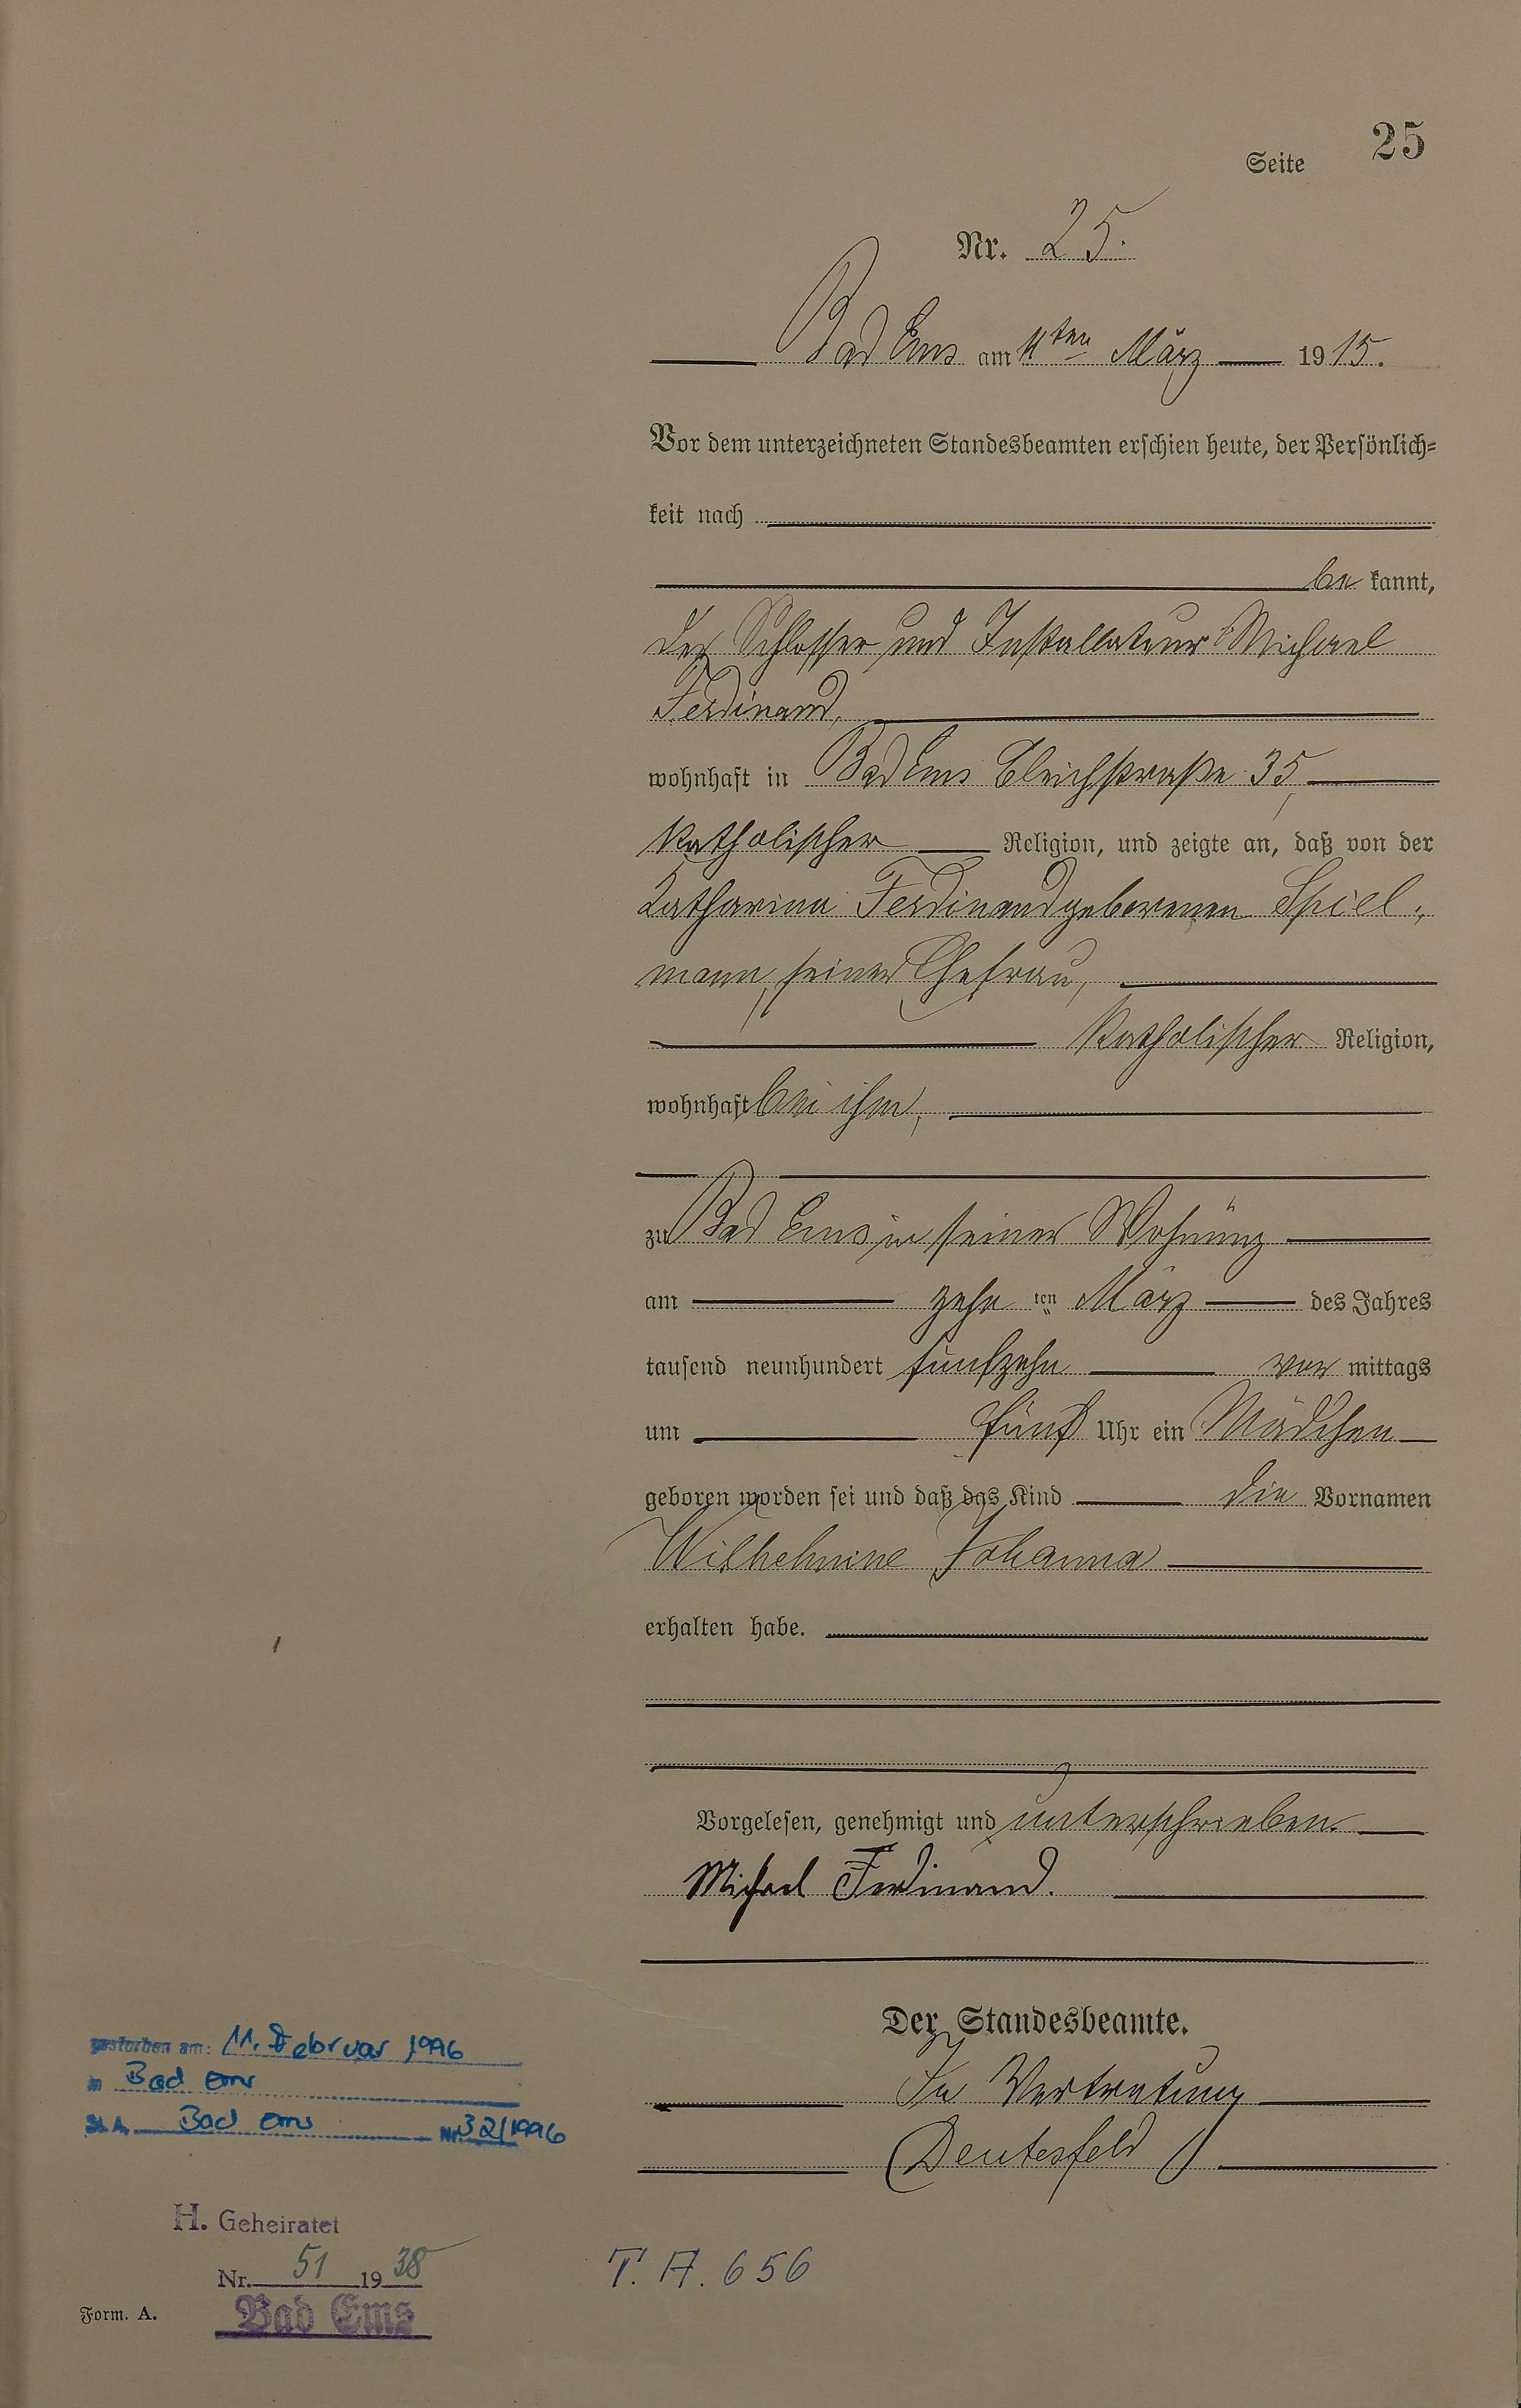 Seite 25
Nr. 25.
Bad Ems am 11ten März 1915.
Vor dem unterzeichneten Standesbeamten erschien heute, der Persönlich=
keit nach
be kannt,
der Schlosser und Installateur Michael
Ferdinand,
wohnhaft in Bad Ems Bleichstraße 35,
katholischer Religion, und zeigte an, daß von der
Katharina Ferdinand geborenen Spiel=
mann, seiner Ehefrau,
katholischer Religion,
wohnhaft bei ihm,
zu Bad Ems in seiner Wohnung
am zehn ten März des Jahres
tausend neunhundert fünfzehn vor mittags
um fünf Uhr ein Mädchen
geboren worden sei und daß das Kind die Vornamen
Wilhelmine Johanna
erhalten habe.
Vorgelesen, genehmigt und unterschrieben.
Michael Ferdinand.
Der Standesbeamte.
In Vertretung
(Deutesfeld)
gestorben am: 11. Februar 1996
in Bad Ems
St. A. Bad Ems Nr. 32/1996
H. Geheiratet
Nr. 51 1938
Bad Ems
T. A. 656
Form. A.